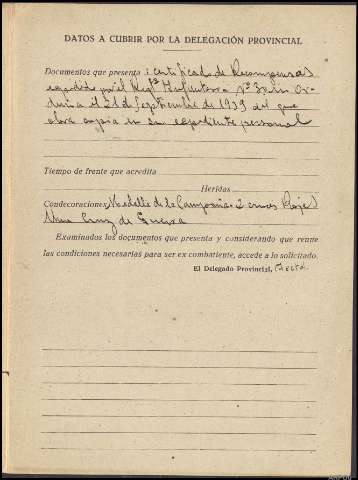 DATOS A CUBRIR POR LA DELEGACIÓN PROVINCIAL
Documentos que presenta: Certificado de Recompensas
expedido por el Regto Infanteria nº 30 en
el 21 de Septiembre de 1939 del que
obra copia en su expediente personal
Tiempo de frente que acredita
Heridas
Condecoraciones Medalla de la Campaña 2 cruces Rojas
Una Cruz de Guerra
Examinados los documentos que presenta y considerando que reune
las condiciones necesarias para ser ex combatiente, accede a lo solicitado.
El Delegado Provincial,